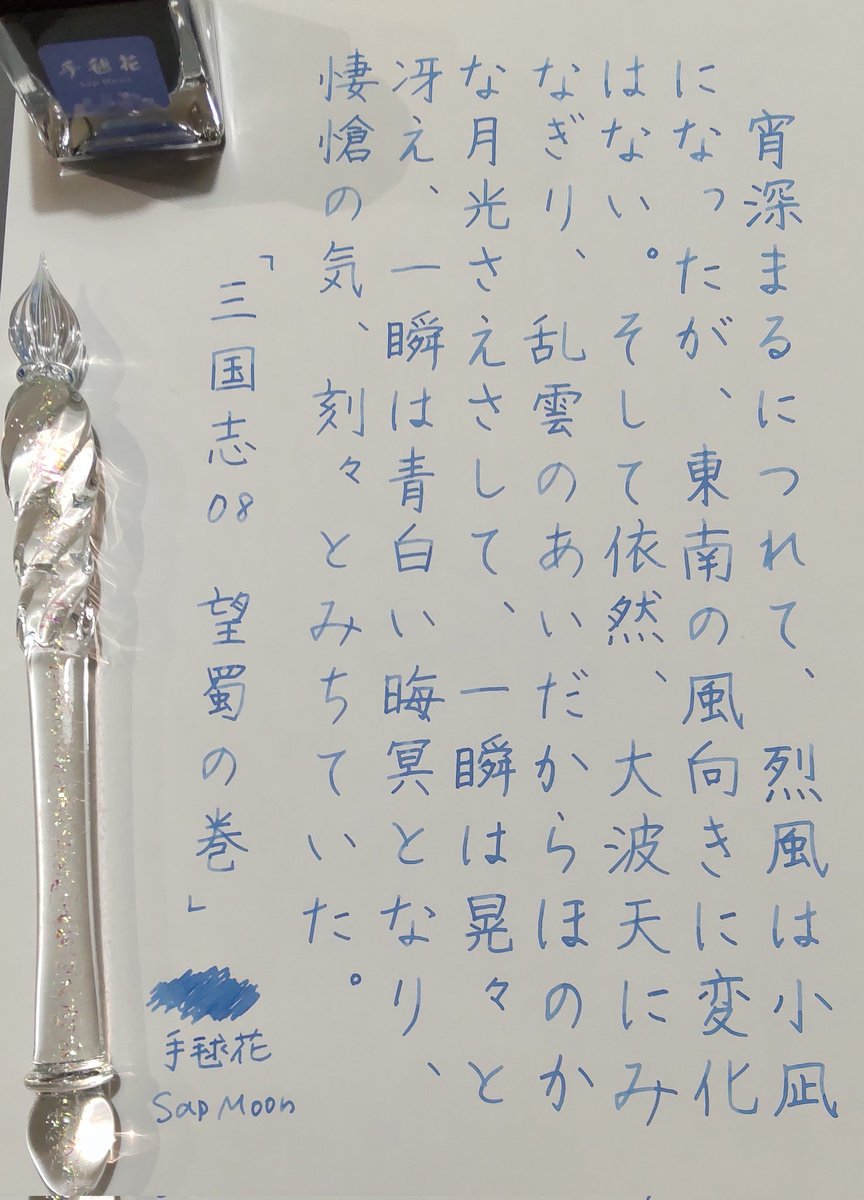 宵深まるにつれて、烈風は小凪
になったが、東南の風向きに変化
はない。そして依然、大波天にみ
なぎり、乱雲のあいだからほのか
な月光さえさして、一瞬は晃々と
冴え、一瞬は青白い晦冥となり、
悽愴の気、刻々とみちていた。
「三国志08 望蜀の巻」
手毬花
Sap Moon
手毬花
Sap Moon